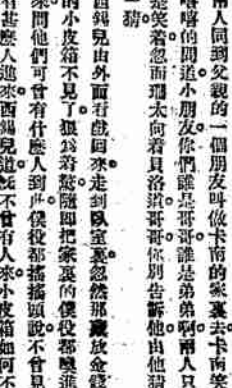 兩人同到父親的一個朋友叫做卡南的家裏去卡南笑
嘻嘻的問道小朋友你們誰是哥哥誰是弟弟啊兩人只
是笑着忽而瑪太向着貝洛道哥哥你別告訴他由他猜
一猜
西錫兒由外面看戲回來走到臥室裏忽然那藏放金錢
的小皮箱不見了狠爲着驚隨即把家裏的僕役都喚進
來問他們可曾有什麼人到此僕役都搖搖頭說不曾見
有甚麼人進來西錫兒道旣不曾有人來小皮箱如何不